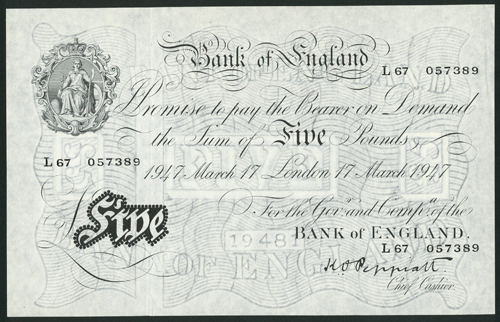 Bank of England
L 67 057389
I Promise to pay the Bearer on Demand
the Sum of Five Pounds
L 67 057389
1947 March 17 London 17 March 1947
For the Gov.r and Comp.a of the
£ Five
BANK OF ENGLAND.
1948
L 67 057389
OF ENGLAND
K O Peppiatt
Chief Cashier.